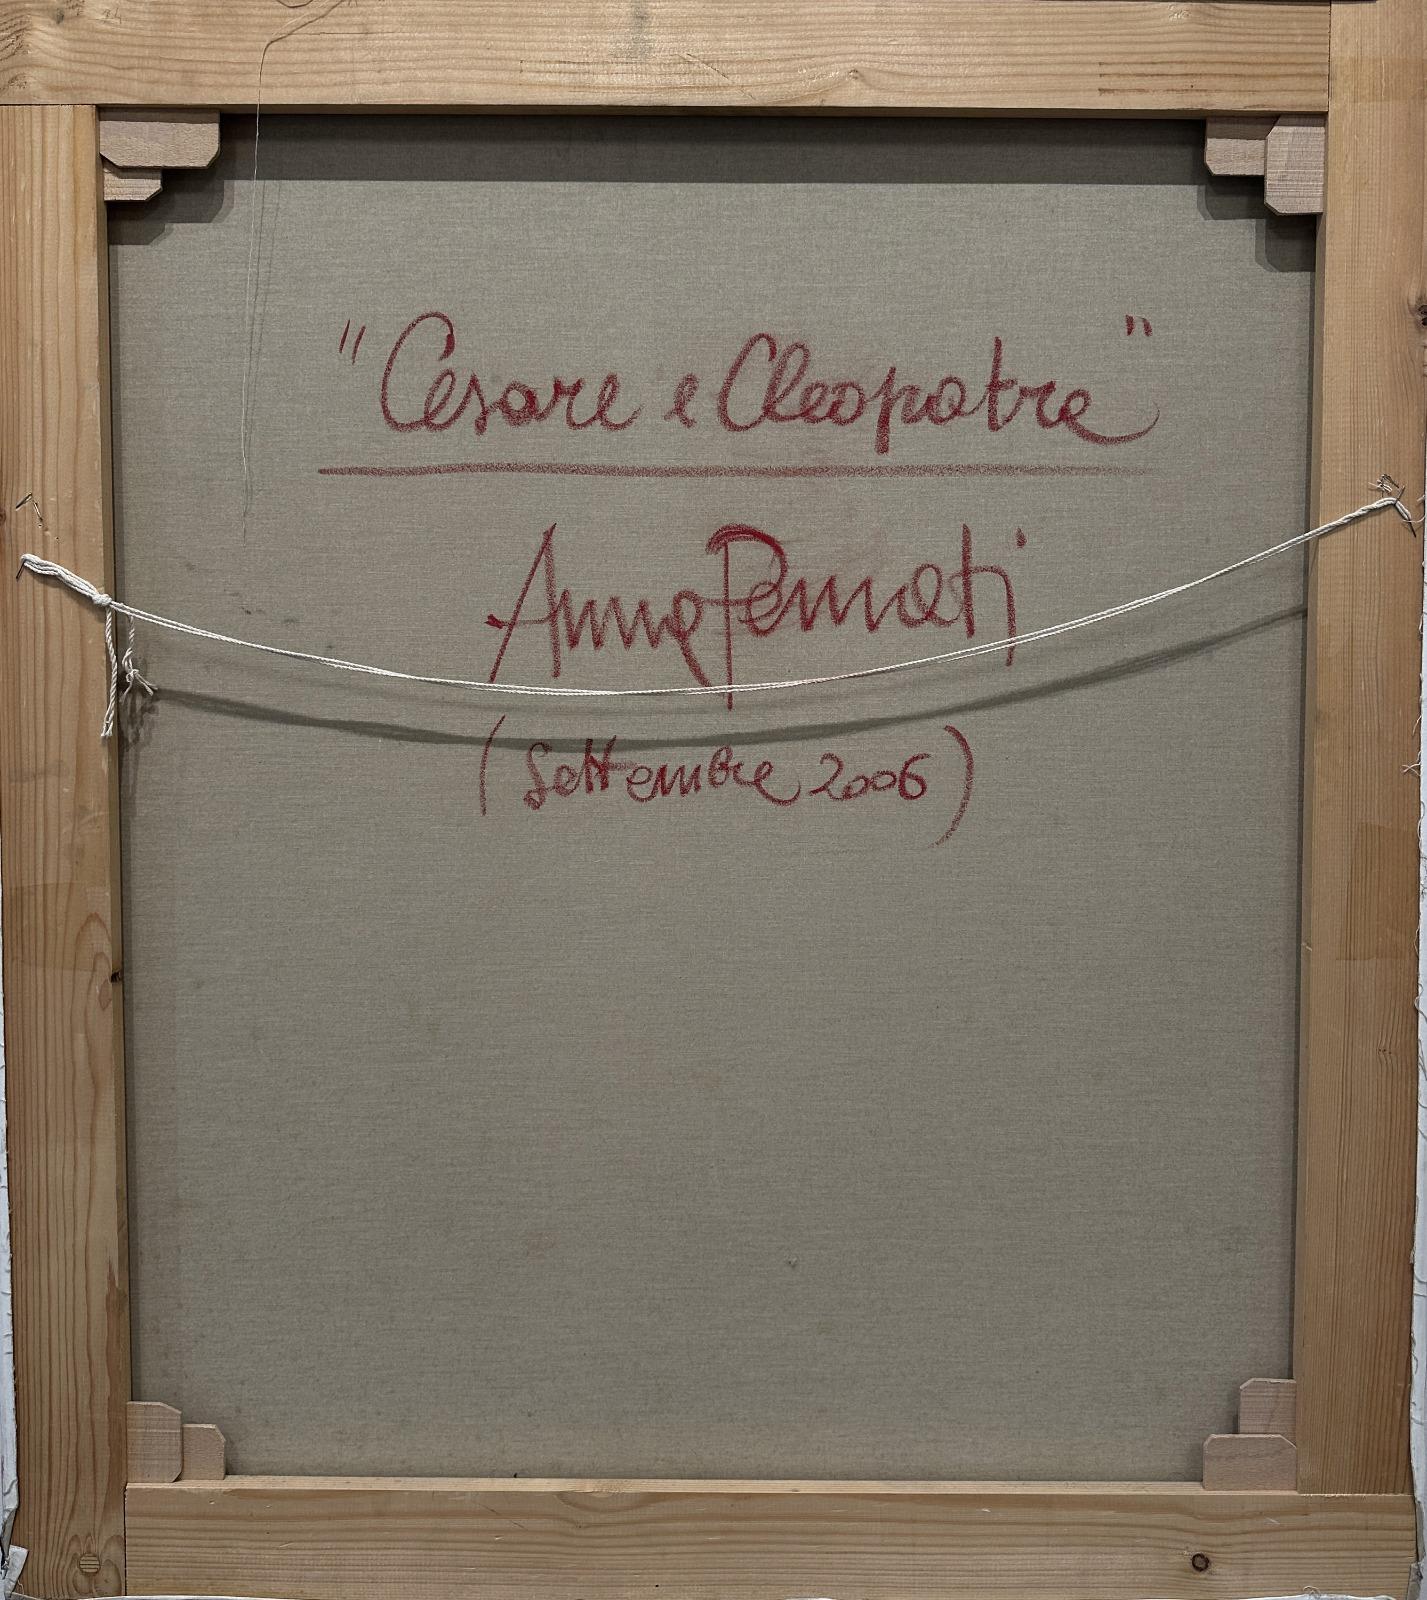 "Cesare e Cleopatra"
Anna Pennati
(Settembre 2006)